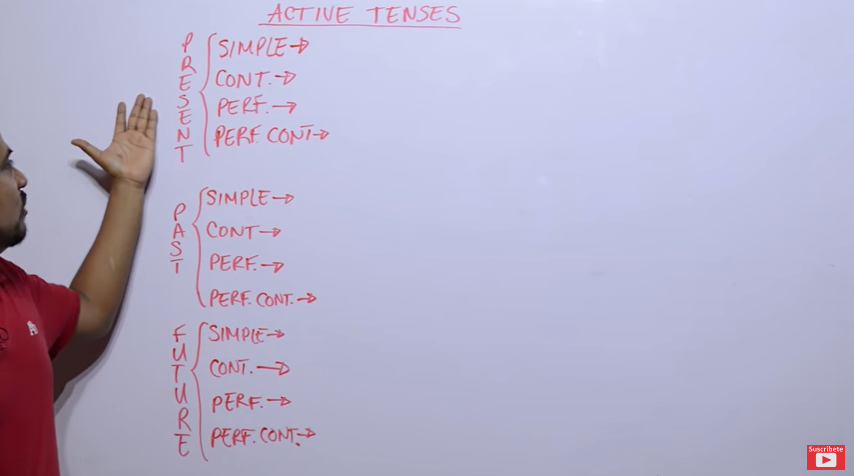 ACTIVE TENSES
PRESENT
SIMPLE →
CONT. →
PERF. →
PERF. CONT →
PAST
SIMPLE →
CONT →
PERF. →
PERF. CONT. →
FUTURE
SIMPLE →
CONT. →
PERF. →
PERF. CONT. →
Suscríbete